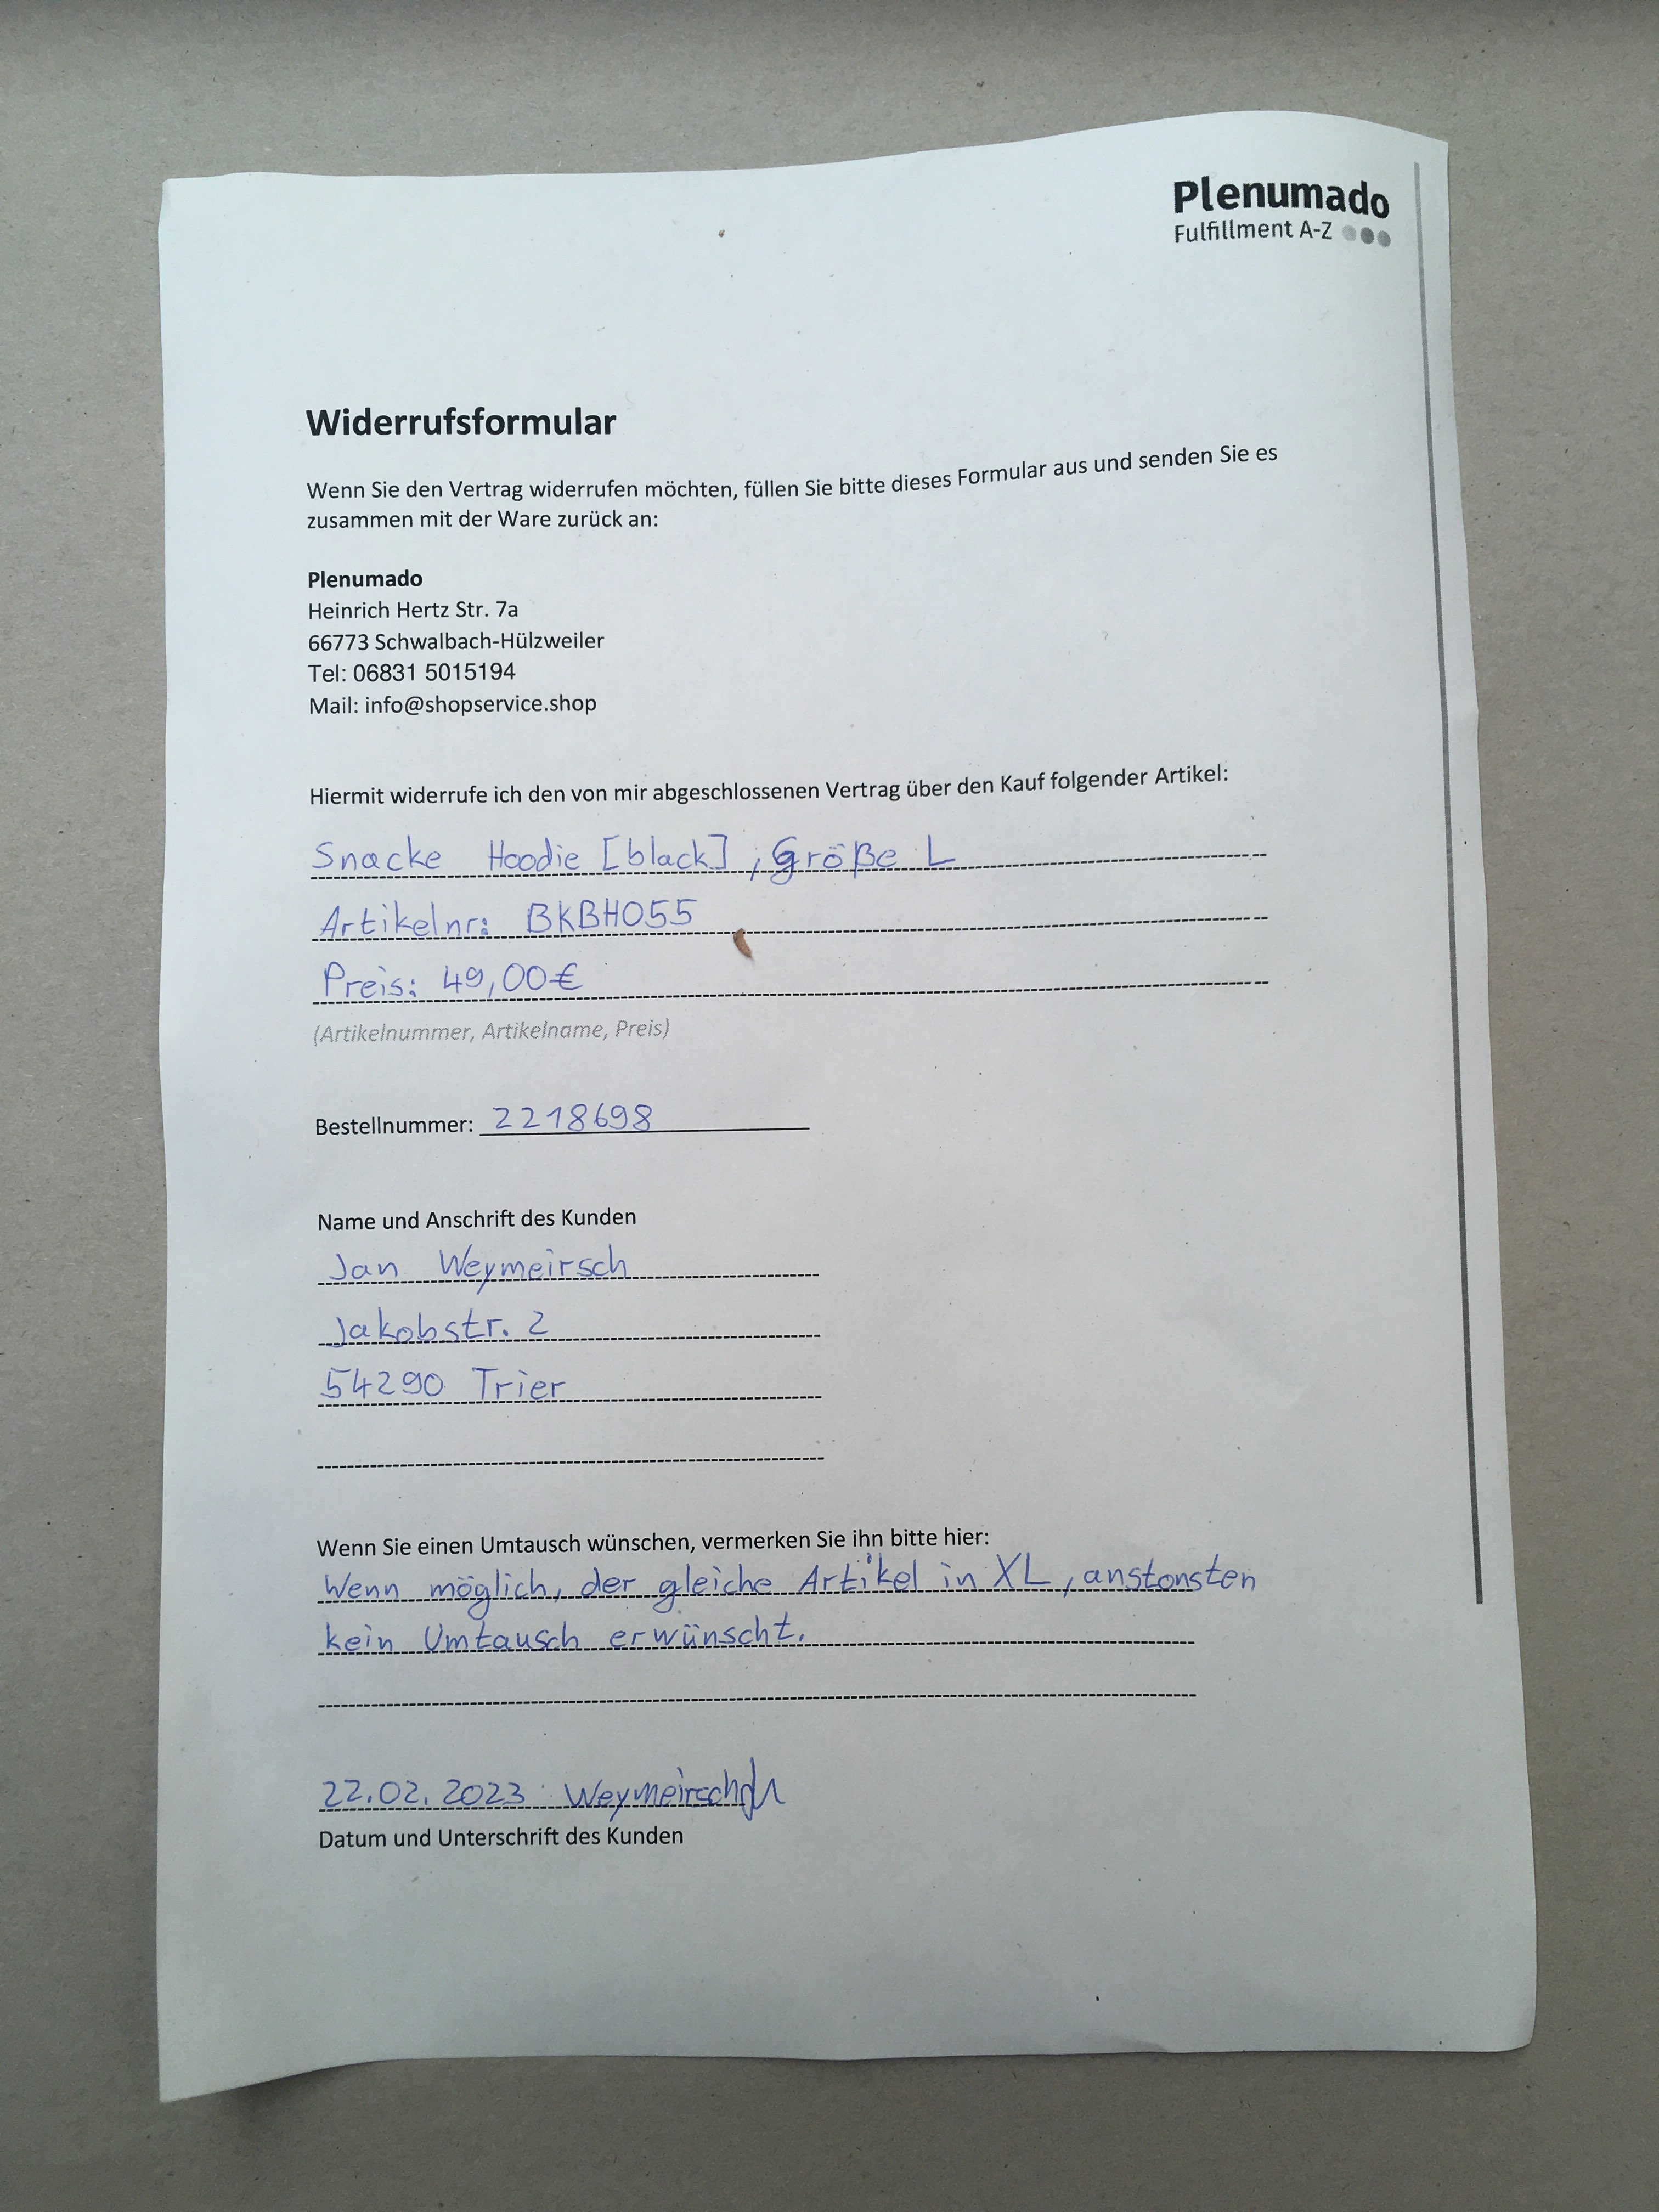 Plenumado
Fulfillment A-Z
Widerrufsformular
Wenn Sie den Vertrag widerrufen möchten, füllen Sie bitte dieses Formular aus und senden Sie es
zusammen mit der Ware zurück an:
Plenumado
Heinrich Hertz Str. 7a
66773 Schwalbach-Hülzweiler
Tel: 06831 5015194
Mail: info@shopservice.shop
Hiermit widerrufe ich den von mir abgeschlossenen Vertrag über den Kauf folgender Artikel:
Snacke Hoodie [black], Größe L
Artikelnr: BKBH055
Preis: 49,00€
(Artikelnummer, Artikelname, Preis)
Bestellnummer: 2218698
Name und Anschrift des Kunden
Jan Weymeirsch
Jakobstr. 2
54290 Trier
Wenn Sie einen Umtausch wünschen, vermerken Sie ihn bitte hier:
Wenn möglich, der gleiche Artikel in XL, anstonsten
kein Umtausch erwünscht.
22.02.2023 Weymeirsch
Datum und Unterschrift des Kunden